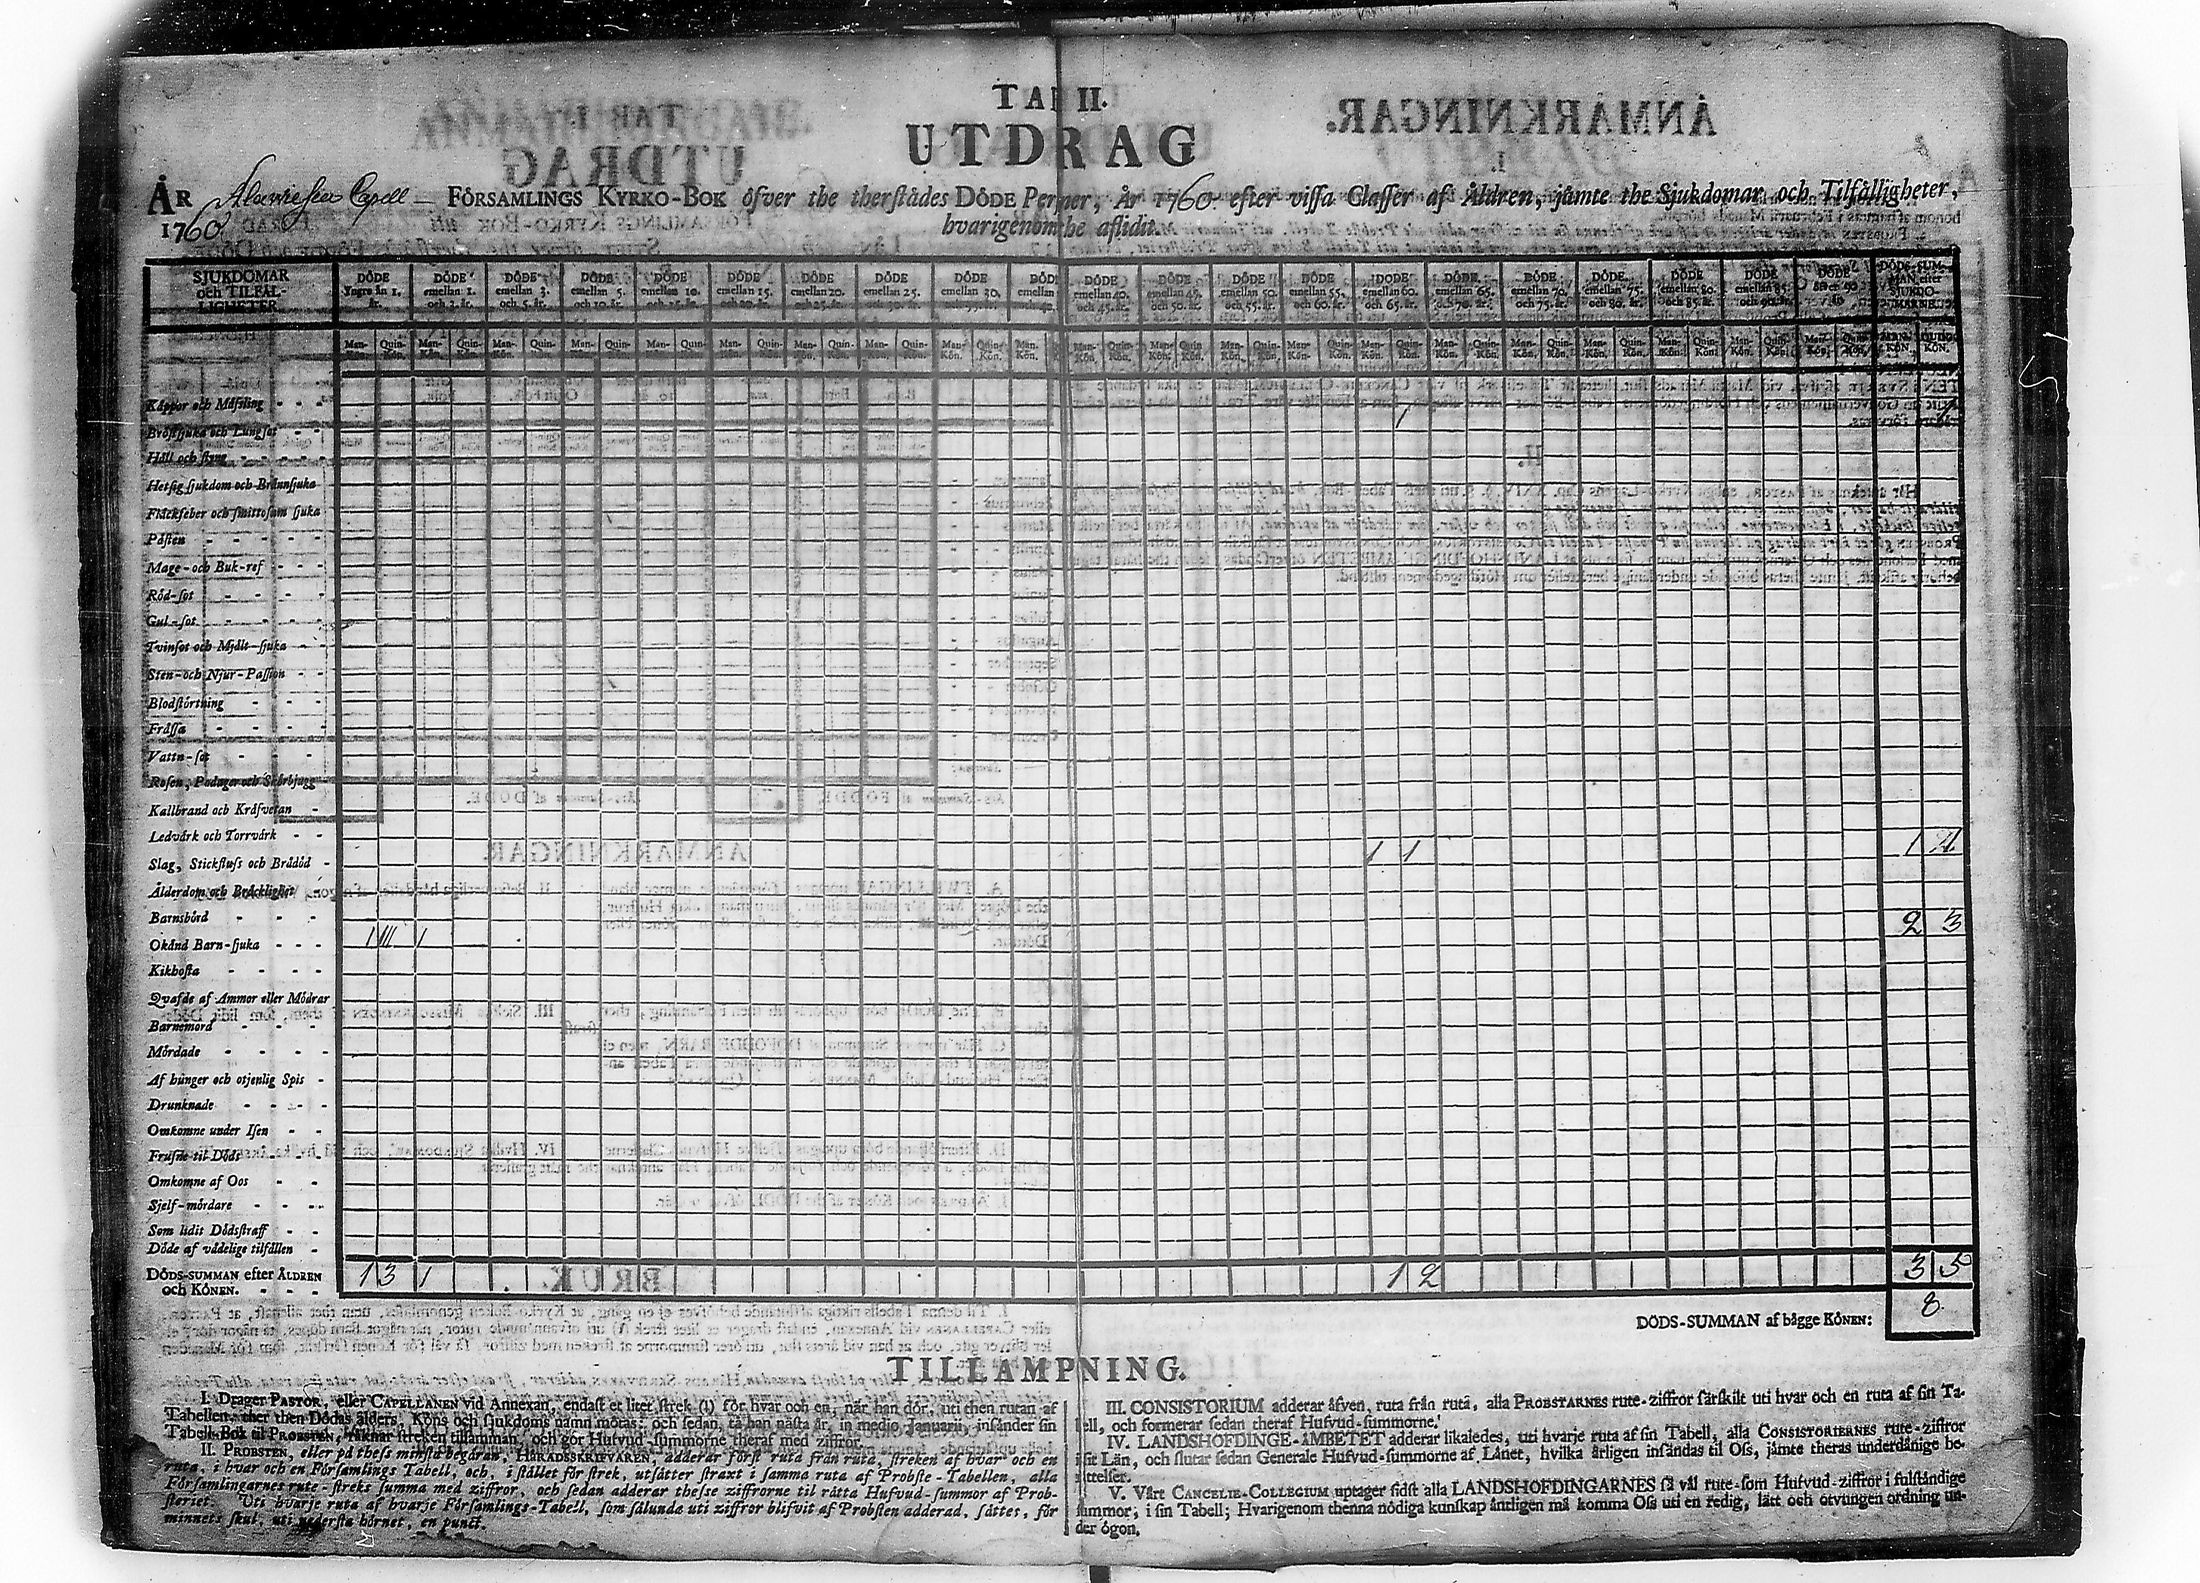 TAB II.
UTDRAG
ÅR Capell — FÖRSAMLINGS KYRKO-BOK öfver the therstädes DÖDE Per ner, År 1760. efter vissa Classer af Åldren, jämte the Sjukdomar och Tilfälligheter,
1760 hvarigenom the aflidit.
SJUKDOMAR och TILFÄLLIGHETER
DÖDE Yngre än 1. år.
DÖDE emellan 1. och 3. år.
DÖDE emellan 3. och 5. år.
DÖDE emellan 5. och 10. år.
DÖDE emellan 10. och 15. år.
DÖDE emellan 15. och 20. år.
DÖDE emellan 20. och 25. år.
DÖDE emellan 25. och 30. år.
DÖDE emellan 30. och 35. år.
DÖD emellan
DÖDE emellan 40. och 45. år.
DÖDE emellan 45. och 50. år.
DÖDE emellan 50. och 55. år.
DÖDE emellan 55. och 60. år.
DÖDE emellan 60. och 65. år.
DÖDE emellan 65. och 70. år.
DÖDE emellan 70. och 75. år.
DÖDE emellan 75. och 80. år.
DÖDE emellan 80. och 85. år.
DÖDE emellan 85. och 90. år.
DÖDE öfver 90 år
DÖDS-SUMMAN efter SJUKDOMARNE
Man-Kön. Quin-Kön. Man-Kön. Quin-Kön. Man-Kön. Quin-Kön. Man-Kön. Quin-Kön. Man-Kön. Quin-Kön. Man-Kön. Quin-Kön. Man-Kön. Quin-Kön. Man-Kön. Quin-Kön. Man-Kön. Quin-Kön. Man-Kön. Man-Kön. Quin-Kön. Man-Kön. Quin-Kön. Man-Kön. Quin-Kön. Man-Kön. Quin-Kön. Man-Kön. Quin-Kön. Man-Kön. Quin-Kön. Man-Kön. Quin-Kön. Man-Kön. Quin-Kön. Man-Kön. Quin-Kön. Man-Kön. Quin-Kön. Man-Kön. Quin-Kön. MAN-KÖN. QUIN-KÖN.
Kåppor och Mässling - - -
Bröstsjuka och Lungsot - - 1
Håll och styng - - - - -
Hetsig sjukdom och Brännsjuka
Fläckfeber och smittosam sjuka
Påsten - - - - -
Mage-och Buk-ref - - -
Röd-sot - - - - -
Gul-sot - - - - -
Tvinsot och Mjält-sjuka - -
Sten-och Njur-Passion - -
Blodstörtning - - -
Frässa - - - - -
Vattn-sot - -
Rosen, Podager och Skörbjugg
Kallbrand och Kräfvetan -
Ledvärk och Torrvärk - -
Slag, Stickfluss och Brådöd - 1 1 1
Ålderdom och Bräcklighet -
Barnsbörd - - - -
Okänd Barn-sjuka - - - 1 III 1 2 3
Kikhosta - - - -
Qvafde af Ammor eller Mödrar
Barnemord - - - -
Mördade - - - -
Af hunger och otjenlig Spis -
Drunknade - - - -
Omkomne under Isen - -
Frusne til Döds - - - -
Omkomne af Oos - -
Sjelf-mördare - - -
Som lidit Dödsstraff - -
Döde af vådelige tilfällen -
DÖDS-SUMMAN efter ÅLDREN och KÖNEN. - - - 1 3 1 1 2 3 5
DÖDS-SUMMAN af bägge KÖNEN: 8
TILLÄMPNING.
I. Drager PASTOR, eller CAPELLANEN vid Annexan, endast et litet strek (1) för hvar och en, när han dör, uti then rutan af
Tabellen, ther then Dödas ålders, Köns och sjukdoms namn mötas: och sedan, tå han nästa år, in medio Januarii, insänder sin
Tabell-Bok til PROBSTEN, räknar streken tillsamman, och gör Hufvud-summorne theraf med ziffror.
II. PROBSTEN, eller på thess minsta begäran, HÄRADSSKRIFVAREN, adderar först ruta från ruta, streken af hvar och en
ruta, i hvar och en Församlings Tabell, och, i stället för strek, utsätter straxt i samma ruta af Probste-Tabellen, alla
Församlingarnes rute-streks summa med ziffror, och sedan adderar thesse ziffrorne til rätta Hufvud-summor af Prob-
steriet. Uti hvarje ruta af hvarje Församlings-Tabell, som sålunda uti ziffror blifvit af Probsten adderad, sättes, för
minnets skul, uti nedersta hörnet, en punct.
III. CONSISTORIUM adderar äfven, ruta från ruta, alla PROBSTARNES rute-ziffror särskilt uti hvar och en ruta af sin Ta-
bell, och formerar sedan theraf Hufvud-summorne.
IV. LANDSHÖFDINGE-ÄMBETET adderar likaledes, uti hvarje ruta af sin Tabell, alla CONSISTORIERNES rute-ziffror
i sit Län, och slutar sedan Generale Hufvud-summorne af Länet, hvilka årligen insändas til Oss, jämte theras underdånige be-
rättelser.
V. Vårt CANCELIE-COLLEGIUM uptager sidst alla LANDSHÖFDINGARNES så väl rute-som Hufvud-ziffror i fulständige
summor, i sin Tabell; Hvarigenom thenna nödiga kunskap äntligen må komma Oss uti en redig, lätt och otvungen ordning un-
der ögon.